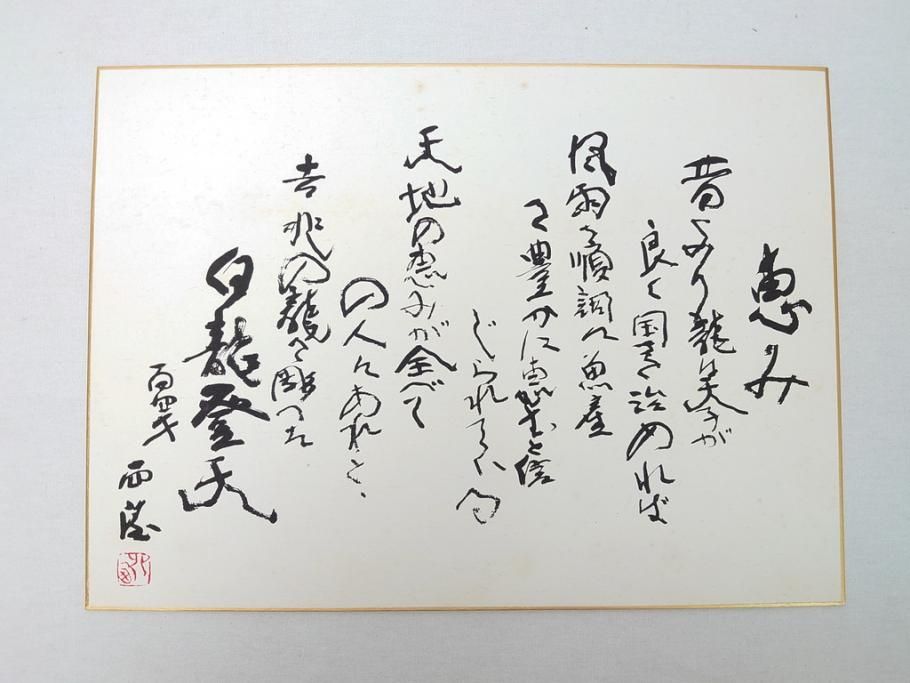 恵み
昔より龍は天子が
良く国を治めれば
風雨が順調に魚産
も豊かに恵むと信
じられている
天地の恵みが全べて
の人にあれと、
吉兆の龍を彫った
白龍登天
百四才 西望